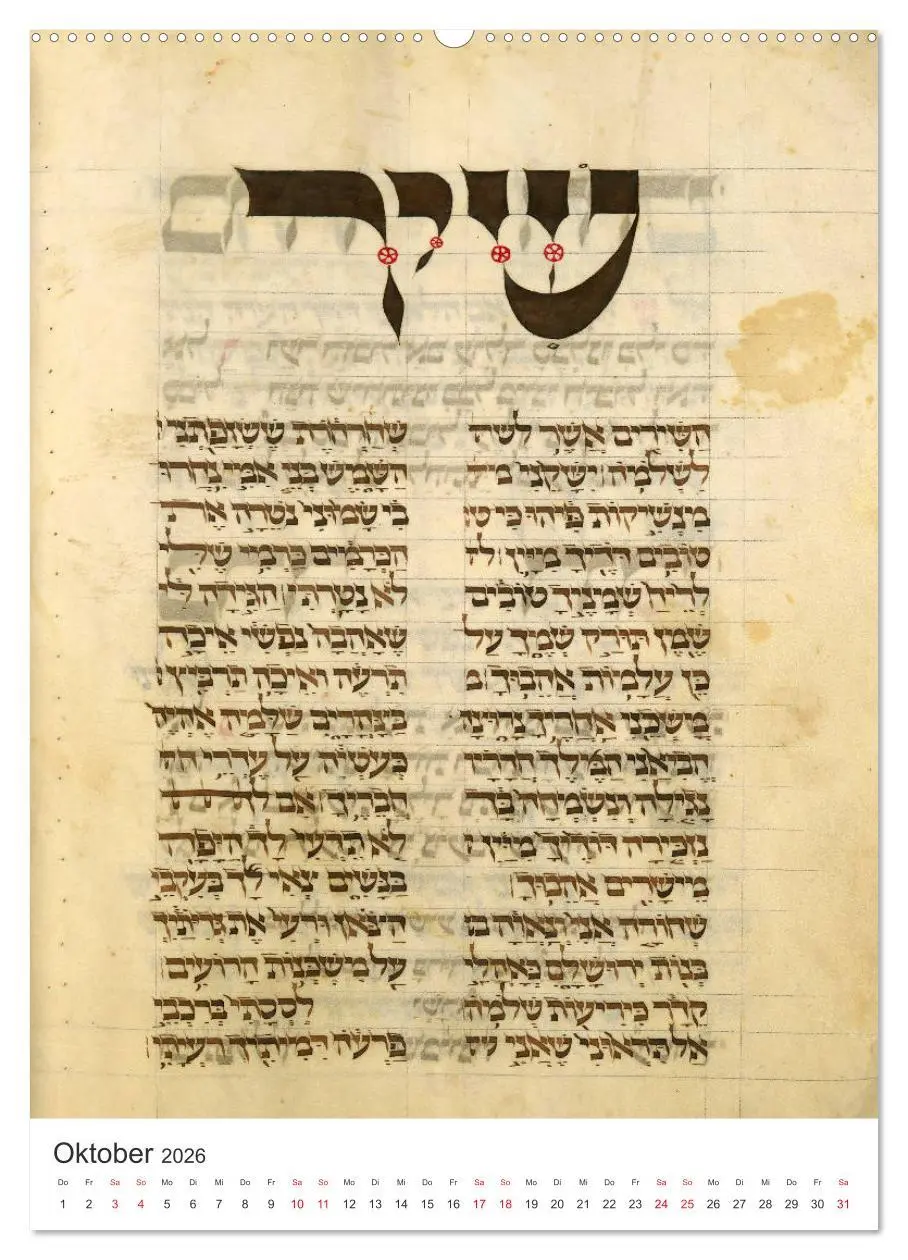 שיר
השירים אשר לשל
לשלמה ישקני מ
מנשיקות פיהו כי טו
טובים דדיך מיין ל
לריח שמניך טובים
שמן תורק שמך על
כן עלמות אהבוך מ
משכני אחריך נרוצה
הביאני המלך חדריו
נגילה ונשמחה בך
נזכירה דודיך מיין
מישרים אהבוך
שחורה אני ונאוה בנ
בנות ירושלם כאהלי
קדר כיריעות שלמה
אל תראוני שאני ש
שחרחרת ששזפתני
השמש בני אמי נחרו
בי שמוני נטרה את
הכרמים כרמי שלי
לא נטרתי הגידה לי
שאהבה נפשי איכה
תרעה איכה תרביץ
בצהרים שלמה אהיה
כעטיה על עדרי
חבריך אם
לא תדעי לך היפה
בנשים צאי לך בעקבי
הצאן ורעי את גדיתיך
על משכנות הרועים
לססתי ברכבי
פרעה דמיתיך רעיתי
Oktober 2026
Do Fr Sa So Mo Di Mi Do Fr Sa So Mo Di Mi Do Fr Sa So Mo Di Mi Do Fr Sa So Mo Di Mi Do Fr Sa
1 2 3 4 5 6 7 8 9 10 11 12 13 14 15 16 17 18 19 20 21 22 23 24 25 26 27 28 29 30 31